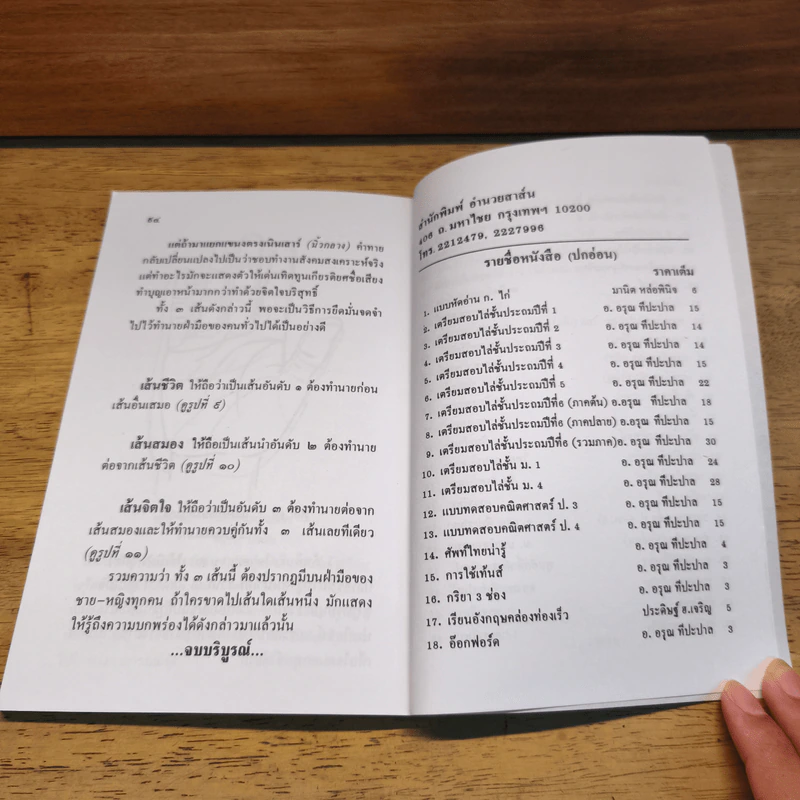 ๕๘
แต่ถ้ามาแยกแขนงตรงเนินเสาร์ (นิ้วกลาง) คำทาย
กลับเปลี่ยนแปลงไปเป็นว่าชอบทำงานสังคมสงเคราะห์จริง
แต่ทำอะไรมักจะแสดงตัวให้เด่นเทิดทูนเกียรติยศชื่อเสียง
ทำบุญเอาหน้ามากกว่าทำด้วยจิตใจบริสุทธิ์
ทั้ง ๓ เส้นดังกล่าวนี้ พอจะเป็นวิธีการยึดมั่นจดจำ
ไปไว้ทำนายฝ่ามือของคนทั่วไปได้เป็นอย่างดี
เส้นชีวิต ให้ถือว่าเป็นเส้นอันดับ ๑ ต้องทำนายก่อน
เส้นอื่นเสมอ (ดูรูปที่ ๙)
เส้นสมอง ให้ถือเป็นเส้นนำอันดับ ๒ ต้องทำนาย
ต่อจากเส้นชีวิต (ดูรูปที่ ๑๐)
เส้นจิตใจ ให้ถือว่าเป็นอันดับ ๓ ต้องทำนายต่อจาก
เส้นสมองและให้ทำนายควบคู่กันทั้ง ๓ เส้นเลยทีเดียว
(ดูรูปที่ ๑๑)
รวมความว่า ทั้ง ๓ เส้นนี้ ต้องปรากฏมีบนฝ่ามือของ
ชาย-หญิงทุกคน ถ้าใครขาดไปเส้นใดเส้นหนึ่ง มักแสดง
ให้รู้ถึงความบกพร่องได้ดังกล่าวมาแล้วนั้น
...จบบริบูรณ์...
สำนักพิมพ์ อำนวยสาส์น
406 ถ.มหาไชย กรุงเทพฯ 10200
โทร.2212479, 2227996
รายชื่อหนังสือ (ปกอ่อน)
ราคาเต็ม
1. แบบหัดอ่าน ก. ไก่ มานิต หล่อพินิจ 6
2. เตรียมสอบไล่ชั้นประถมปีที่ 1 อ. อรุณ ทีปะปาล 15
3. เตรียมสอบไล่ชั้นประถมปีที่ 2 อ. อรุณ ทีปะปาล 14
4. เตรียมสอบไล่ชั้นประถมปีที่ 3 อ. อรุณ ทีปะปาล 14
5. เตรียมสอบไล่ชั้นประถมปีที่ 4 อ. อรุณ ทีปะปาล 15
6. เตรียมสอบไล่ชั้นประถมปีที่ 5 อ. อรุณ ทีปะปาล 22
7. เตรียมสอบไล่ชั้นประถมปีที่6 (ภาคต้น) อ.อรุณ ทีปะปาล 18
8. เตรียมสอบไล่ชั้นประถมปีที่6 (ภาคปลาย) อ.อรุณ ทีปะปาล 15
9. เตรียมสอบไล่ชั้นประถมปีที่6 (รวมภาค)อ. อรุณ ทีปะปาล 30
10. เตรียมสอบไล่ชั้น ม. 1 อ. อรุณ ทีปะปาล 24
11. เตรียมสอบไล่ชั้น ม. 4 อ. อรุณ ทีปะปาล 28
12. แบบทดสอบคณิตศาสตร์ ป. 3 อ. อรุณ ทีปะปาล 15
13. แบบทดสอบคณิตศาสตร์ ป. 4 อ. อรุณ ทีปะปาล 15
14. ศัพท์ไทยน่ารู้ อ. อรุณ ทีปะปาล 4
15. การใช้เท้นส์ อ. อรุณ ทีปะปาล 3
16. กริยา 3 ช่อง อ. อรุณ ทีปะปาล 3
17. เรียนอังกฤษคล่องท่องเร็ว ประดิษฐ์ ฮ.เจริญ 5
18. อ๊อกฟอร์ด อ. อรุณ ทีปะปาล 3